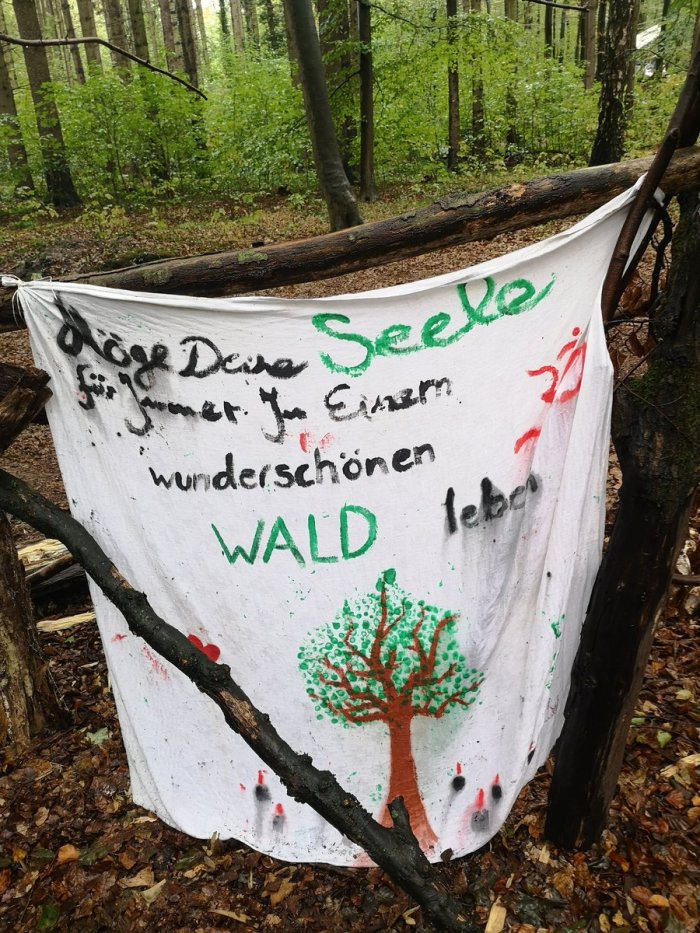 Möge Deine Seele
für Immer In Einem
wunderschönen
WALD leben